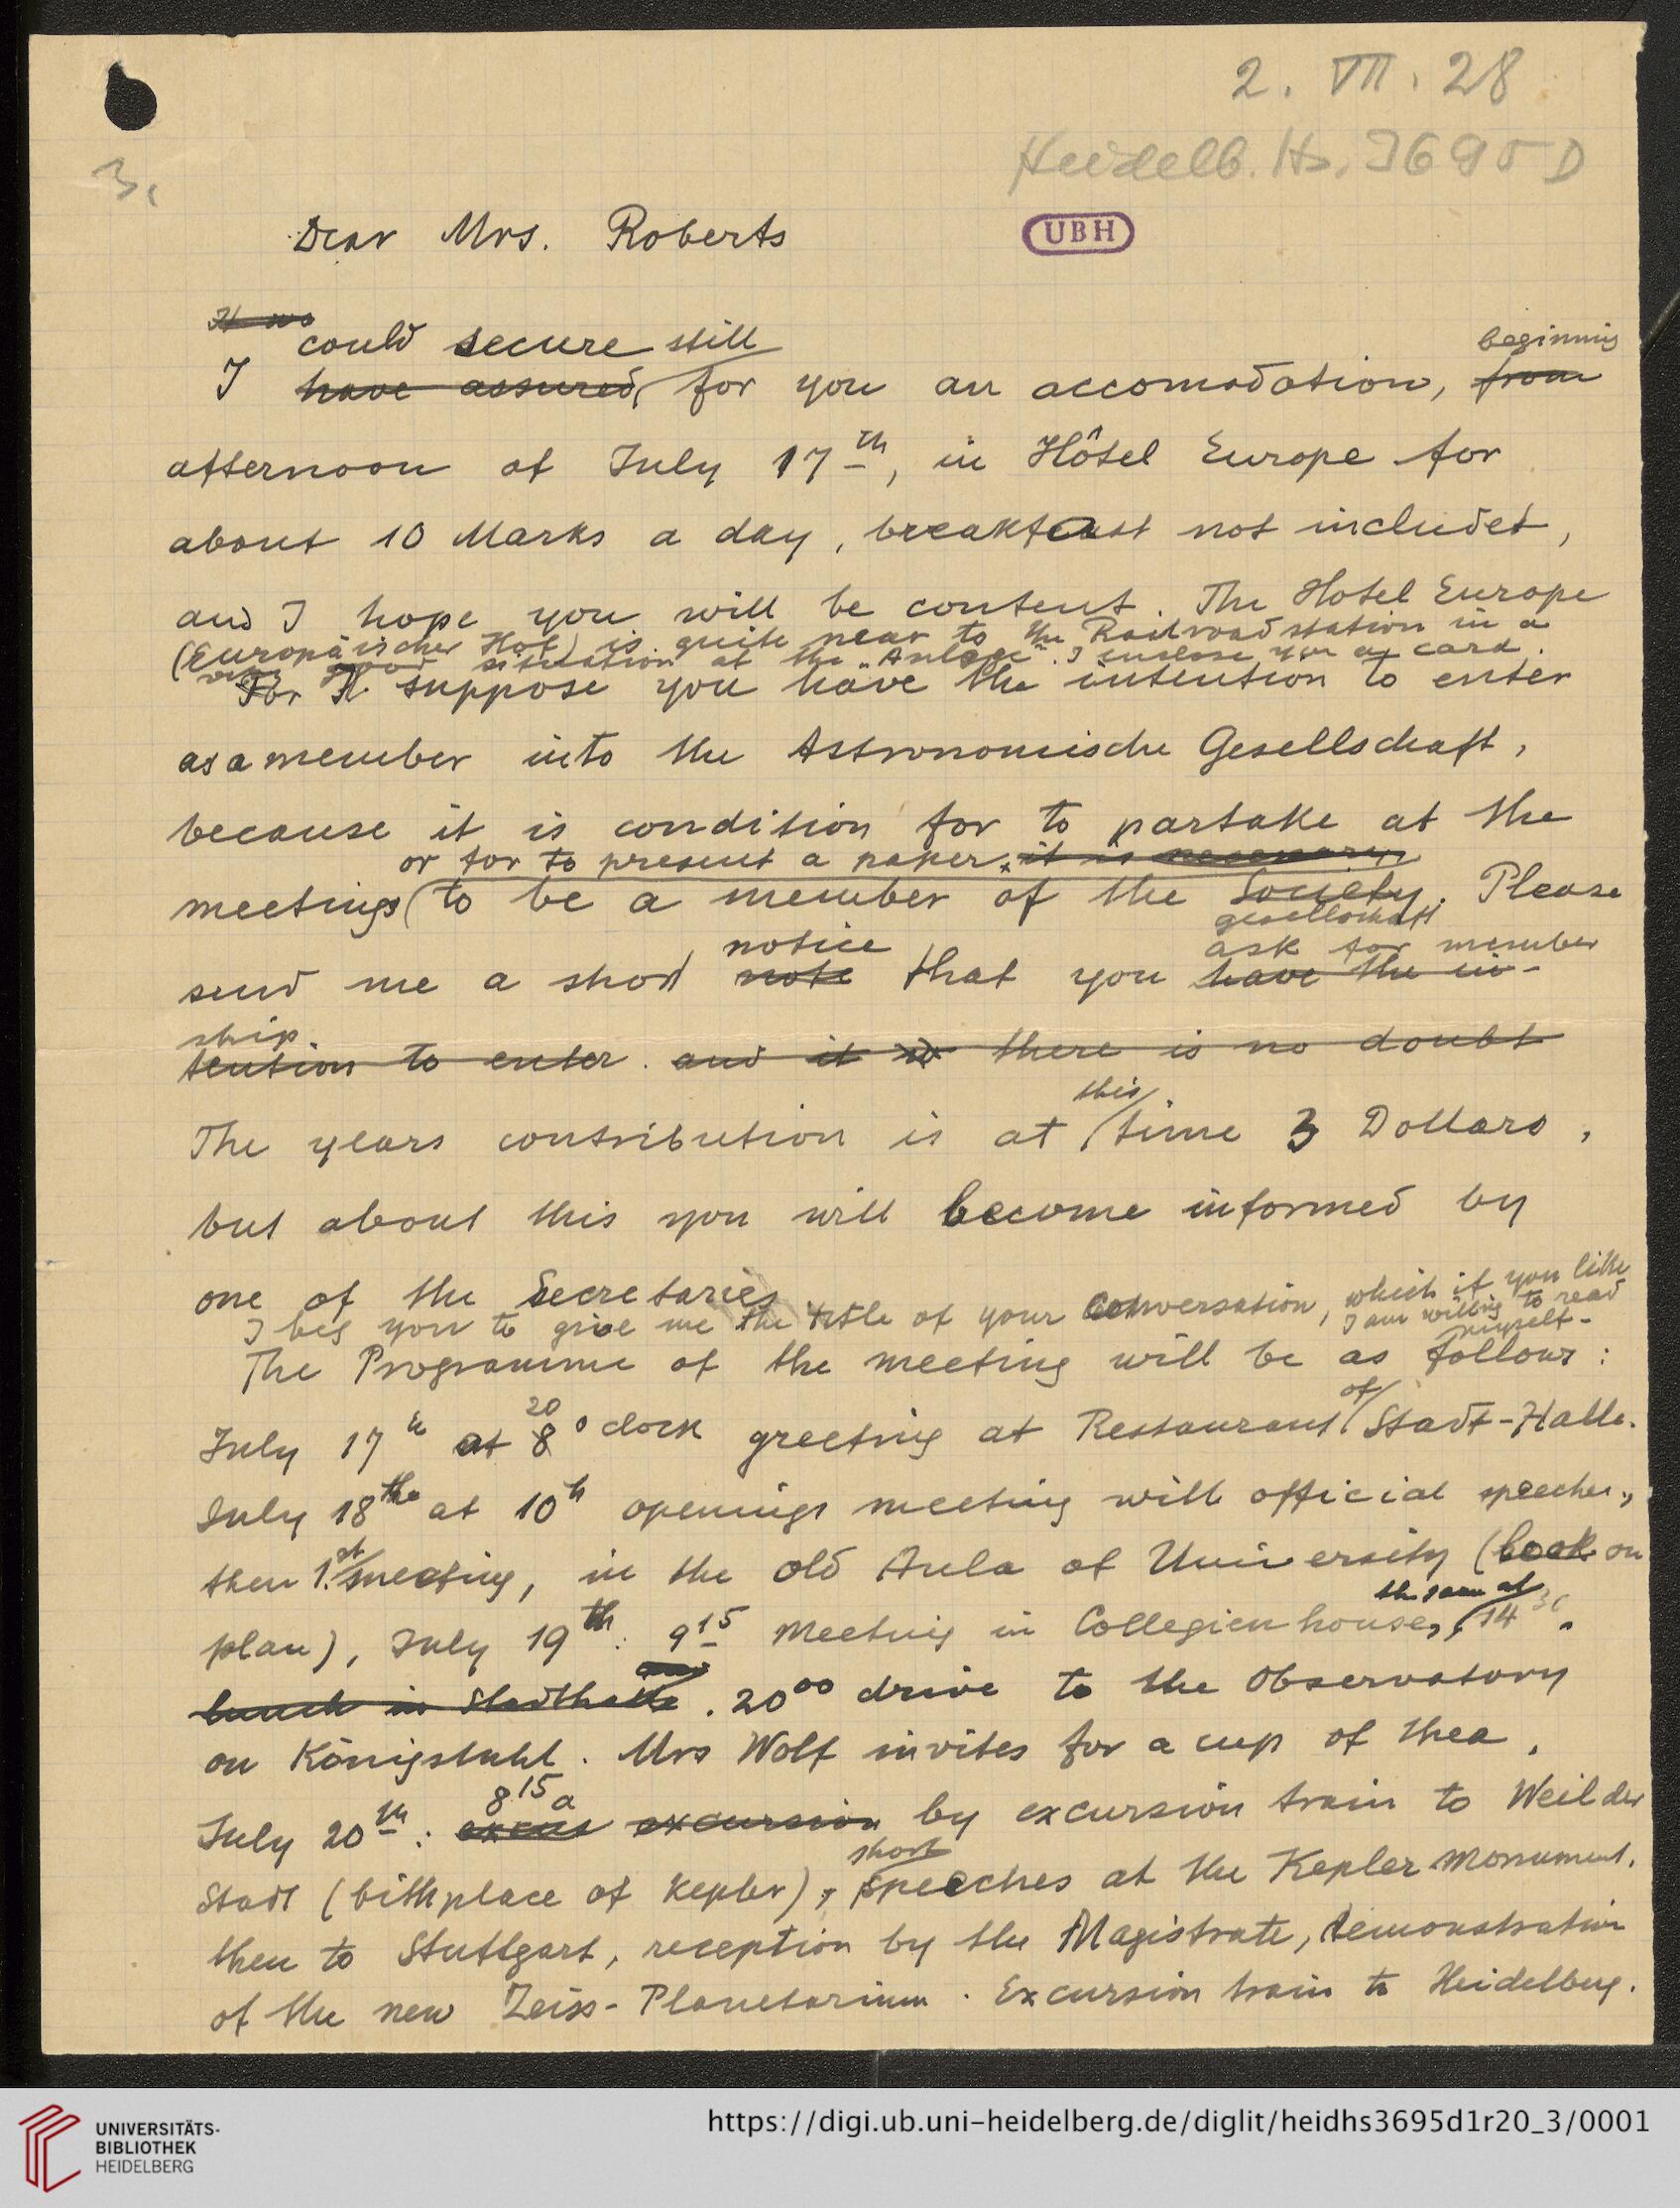 2. VII. 28
Heidelb. Hs. 3695 D
3.
Dear Mrs. Roberts
UBH
could secure still
beginning
I have assured for you an accomodation, from
afternoon of July 17th, in Hôtel Europe for
about 10 Marks a day, breakfast not includet,
and I hope you will be content. The Hotel Europe
(Europäischer Hof) is quite near to the Railroadstation in a
very good situation at the "Anlage". I enclose you a card.
For I suppose you have the intention to enter
as a member into the Astronomische Gesellschaft,
because it is condition for to partake at the
or for to present a paper, it is necessary
meetings to be a member of the Society. Please
gesellschaft
notice
ask for member
send me a short note that you have the in-
ship.
tention to enter. and it is there is no doubt
this
The years contribution is at time 3 Dollars,
but about this you will become informed by
one of the Secretaries.
I beg you to give me the title of your conversation, which if you like
I am willing to read
myself.
The Programme of the meeting will be as follows:
20
of
July 17th at 8 o clock greeting at Restaurant Stadt-Halle.
July 18the at 10h openings meeting with official speeches,
then 1.st meeting, in the old Aula of University (book on
the same at
plan), July 19th: 9 15 Meeting in Collegienhouse, 14 30.
lunch in Stadthalle. 20 00 drive to the Observatory
on Königstuhl. Mrs Wolf invites for a cup of thea.
8 15 a
July 20th: excursion by excursion train to Weil der
short
Stadt (bithplace of Kepler), speeches at the Kepler Monument.
then to Stuttgart, reception by the Magistrate, demonstration
of the new Zeiss-Planetarium. Excursion train to Heidelberg.
UNIVERSITÄTS-
BIBLIOTHEK
HEIDELBERG
https://digi.ub.uni-heidelberg.de/diglit/heidhs3695d1r20_3/0001